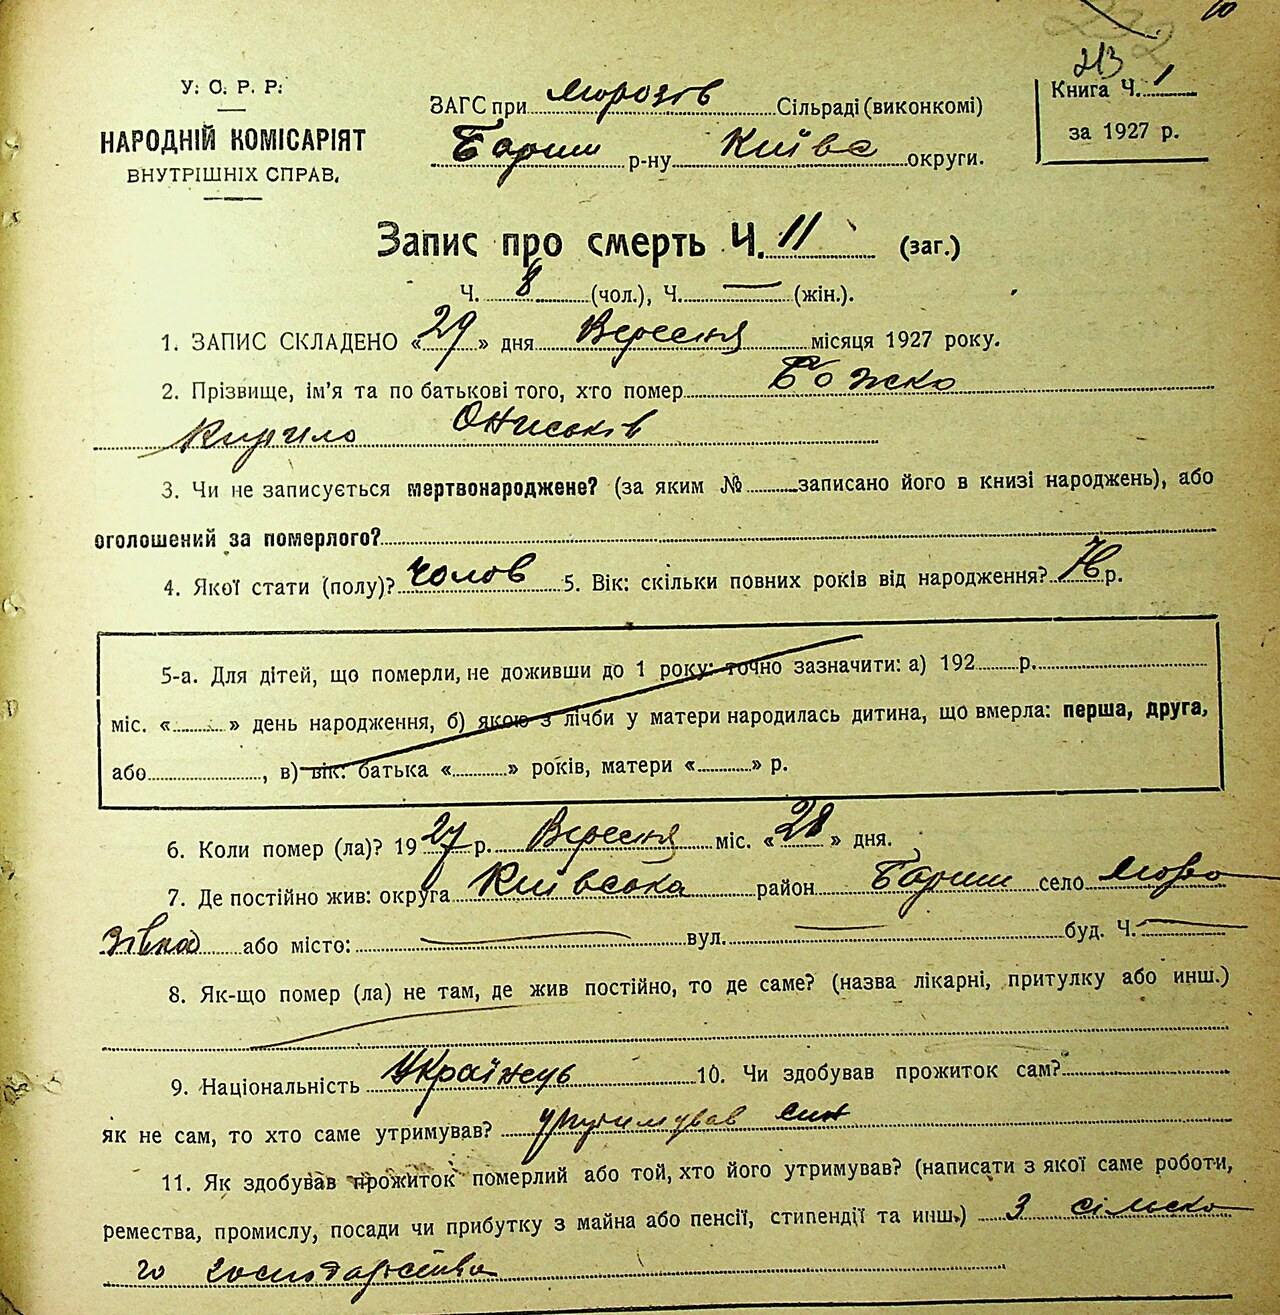 10
232
213
У. С. Р. Р.
НАРОДНІЙ КОМІСАРІЯТ
ВНУТРІШНІХ СПРАВ.
ЗАГС при Морозів Сільраді (виконкомі)
Бориш р-ну Київс округи.
Книга Ч. 1
за 1927 р.
Запис про смерть Ч. 11 (заг.)
Ч. 8 (чол.), Ч. — (жін.).
1. ЗАПИС СКЛАДЕНО «29» дня Вересня місяця 1927 року.
2. Прізвище, ім'я та по батькові того, хто помер Божко
КирилоОниськів
3. Чи не записується мертвонароджене? (за яким № записано його в книзі народжень), або
оголошений за померлого?
4. Якої стати (полу)? Чолов 5. Вік: скільки повних років від народження? р.
5-а. Для дітей, що померли, не доживши до 1 року: точно зазначити: а) 192 р.
міс. « » день народження, б) якою з лічби у матери народилась дитина, що вмерла: перша, друга,
або , в) вік: батька « » років, матери « » р.
6. Коли помер (ла)? 1927 р. Вересня міс. «28» дня.
7. Де постійно жив: округа Київська район Бориш село Моро
зівка або місто: — вул. — буд. Ч. —
8. Як-що помер (ла) не там, де жив постійно, то де саме? (назва лікарні, притулку або инш.)
9. Національність Українець 10. Чи здобував прожиток сам?
як не сам, то хто саме утримував? утримував син
11. Як здобував прожиток померлий або той, хто його утримував? (написати з якої саме роботи,
ремества, промислу, посади чи прибутку з майна або пенсії, стипендії та инш.) З сільсько
го господарства